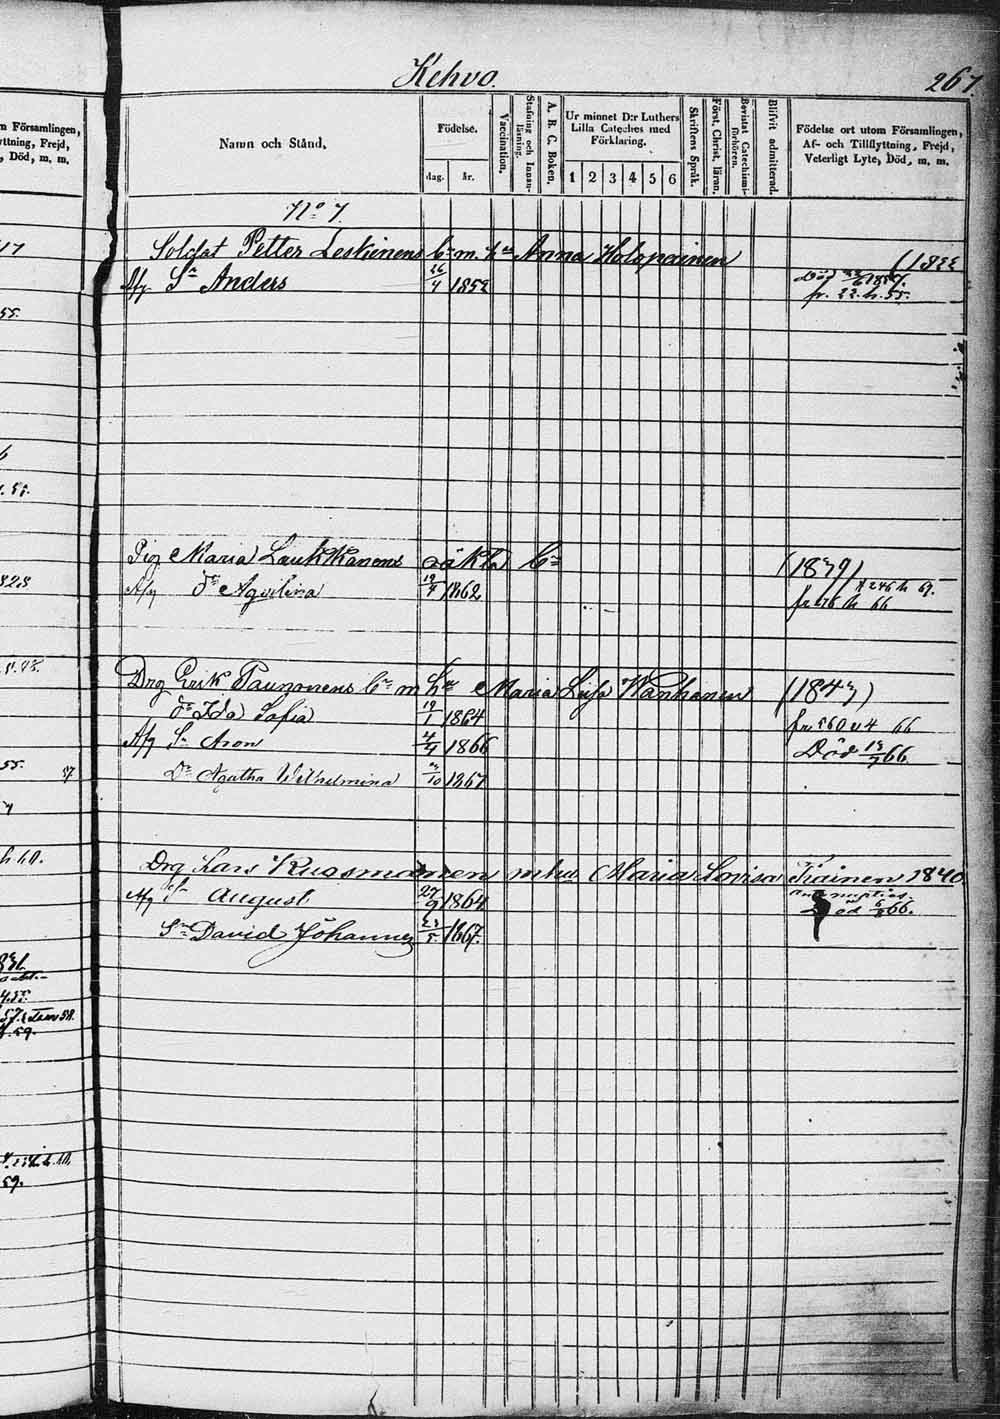 Kehvo.
267
n Församlingen,
yttning, Frejd,
, Död, m. m.
Namn och Stånd.
Födelse.
dag. år.
Vaccination.
Stafning och Innanläsning.
A. B. C. Boken.
Ur minnet D:r Luthers
Lilla Cateches med
Förklaring.
1 2 3 4 5 6
Skriftens Språk.
Först. Christ. läran.
Bevistat Catechismiförhören.
Blifvit admitterad.
Födelse ort utom Församlingen,
Af- och Tillflyttning, Frejd,
Veterligt Lyte, Död, m. m.
No 7.
Soldat Petter Leskinens br m. hu Anna Holopainen (1822
Afg Sn Anders 26/4 1852 Död
fr. 22. h. 55.
Pig Maria Laukkanens oäkta br (1839)
Afg dr Aqvilina 19/4 1862 246 h 67.
fr 46 h 66
Drg Erik Paunonens br m hu Maria Lisa Wanhanen (1843)
dr Ida Sofia 19/1 1864 fr 560 u 4 66
Afg Sn Aron 4/4 1866 Död 13/7 66
Dr Agatha Wilhelmina /10 1867
Drg Lars Kuosmanen m hu Maria Lovisa Tiainen 1840
Afg Sn August 27/9 1864 Död 6/8 66.
Sn David Johannes 23/5 1867.